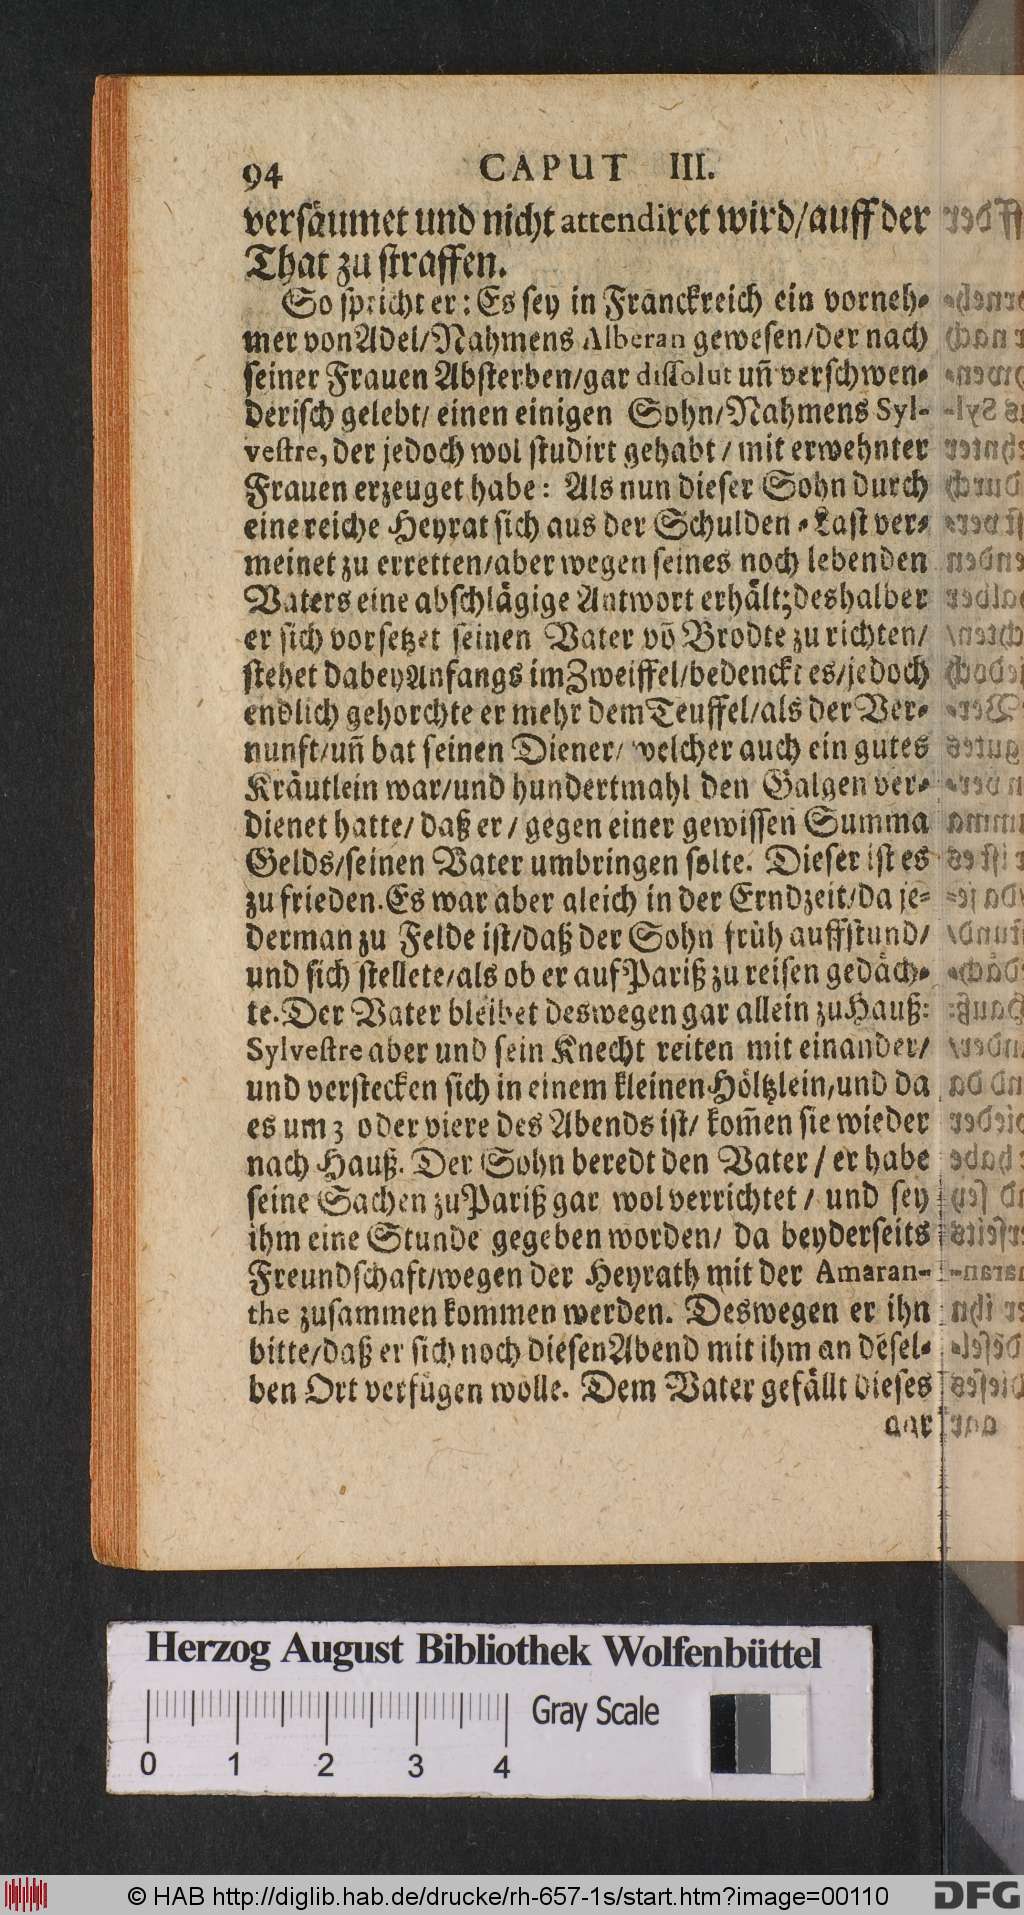 94 CAPUT III.
versäumet und nicht attendiret wird/auff der
That zu straffen.
So spricht er: Es sey in Franckreich ein vorneh-
mer von Adel/Nahmens Alberan gewesen/der nach
seiner Frauen Absterben/gar dissolut uñ verschwen-
derisch gelebt/ einen einigen Sohn/Nahmens Syl-
vestre, der jedoch wol studirt gehabt / mit erwehnter
Frauen erzeuget habe: Als nun dieser Sohn durch
eine reiche Heyrat sich aus der Schulden-Last ver-
meinet zu erretten/aber wegen seines noch lebenden
Vaters eine abschlägige Antwort erhält; deshalber
er sich vorsetzet seinen Vater võ Brodte zu richten/
stehet dabey Anfangs im Zweiffel/bedenckt es/jedoch
endlich gehorchte er mehr dem Teuffel/als der Ver-
nunft/uñ bat seinen Diener/ welcher auch ein gutes
Kräutlein war/und hundertmahl den Galgen ver-
dienet hatte/ daß er / gegen einer gewissen Summa
Gelds/seinen Vater umbringen solte. Dieser ist es
zu frieden. Es war aber gleich in der Erndzeit/da je-
derman zu Felde ist/daß der Sohn früh auffstund/
und sich stellete/als ob er auf Pariß zu reisen gedäch-
te. Der Vater bleibet deswegen gar allein zu Hauß:
Sylvestre aber und sein Knecht reiten mit einander/
und verstecken sich in einem kleinen Höltzlein/und da
es um 3 oder viere des Abends ist/ kom̃en sie wieder
nach Hauß. Der Sohn beredt den Vater / er habe
seine Sachen zu Pariß gar wol verrichtet / und sey
ihm eine Stunde gegeben worden/ da beyderseits
Freundschaft/wegen der Heyrath mit der Amaran-
the zusammen kommen werden. Deswegen er ihn
bitte/daß er sich noch diesen Abend mit ihm an dẽsel-
ben Ort verfügen wolle. Dem Vater gefällt dieses
gar
Herzog August Bibliothek Wolfenbüttel
Gray Scale
0 1 2 3 4
© HAB http://diglib.hab.de/drucke/rh-657-1s/start.htm?image=00110
DFG